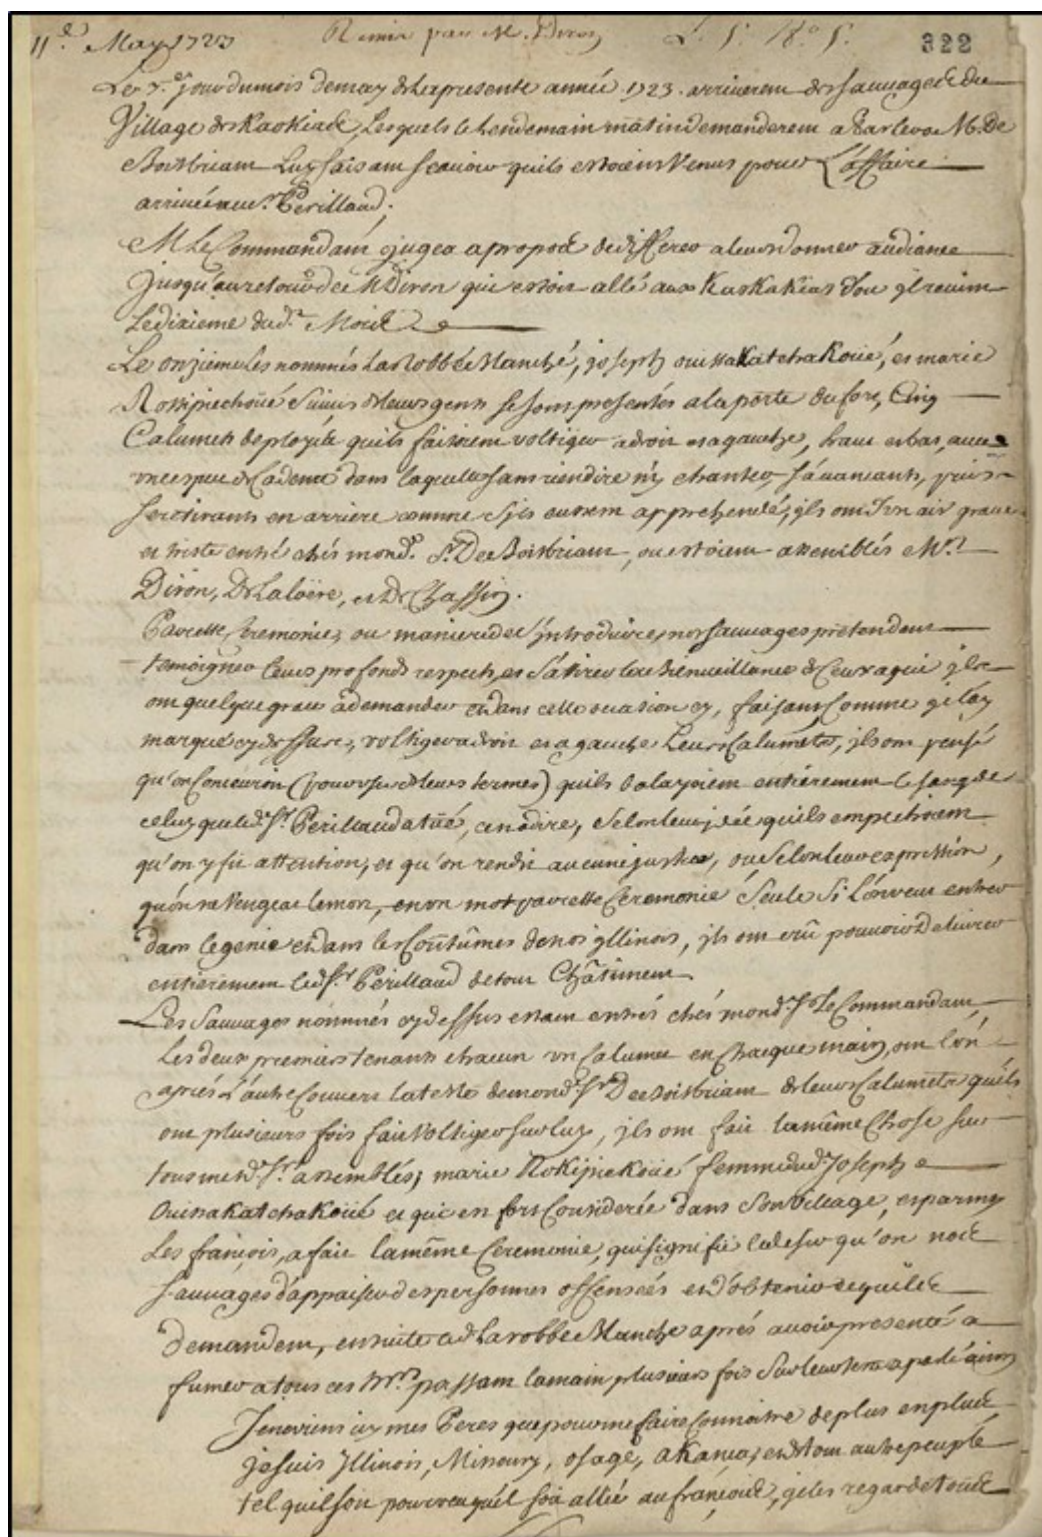 11.e May 1723 Remis par M. Diron L. S. N.o 5. 322
Le 7.e jour du mois de may de la presente année 1723. arriverent des sauvages du
Village des Kaokias, Lesquels le lendemain matin demanderent a Parler a M. De
Boisbriant Luy faisant scavoir qu'ils estoient Venus pour L'affaire
arrivée au sr. Perillaud.
M Le Commandant jugea a propos de differer a leur donner audiance
jusqu'au retour de M Diron qui estoit allé aux Kaskakias d'ou jl revint
Le dixieme du d.t Mois
Le onzieme Les nommés La Robbe Blanche, joseph ouissakatchakoüé, et marie
Rokipiechoüé Suivis de leurs gens se sont presentés a la porte du fort, Cinq
Calumets deployés qu'ils faisoient voltiger a droit et a gauche, haut et bas, avec
une espece de Cadence dans laquelle sans rien dire ny chanter, s'avancants, puis
se retirants en arriere comme s'jls eussent apprehendé, jls ont d'un air grave
et triste entré chés mond. Sr. De Boisbriant, ou estoient assemblés Mrs.
Diron, De Laloëre, et De Chassin.
Par cette Ceremonie, ou maniere de s'jntroduire, nos sauvages pretendent
temoigner leurs profonds respects, et s'attirer la bienveillance de Ceux a qui jls
ont quelque grace a demander et dans cette occasion cy, faisant Comme je l'ay
marqué cy dessus, voltiger a droit et a gauche Leurs Calumets, jls ont pensé
qu'on Concevroit (pour user de leurs termes) qu'ils balayoient entiérement le sang de
celuy que led. Sr. Perillaud a tüé, c'est a dire, Selon leur jdée qu'ils empechoient
qu'on y fit attention, et qu'on rendit aucune justice, ou Selon leur expression,
qu'on ne Vengeat le mort, en un mot par cette Céremonie Seule Si L'on veut entrer
dans le genie et dans les Coûtûmes de nos jllinois, jls ont crû pouvoir Delivrer
entiérement led. Sr. Perillaud de tout Châtiment
Les Sauvages nommés cy dessus estant entrés chés mond. Sr. Le Commandant,
Les deux premiers tenants chacun un Calumet en Chacque main, ont l'un
aprés L'autre Couvert la teste de mond. Sr. De Boisbriant de leurs Calumets qu'ils
ont plusieurs fois fait Voltiger sur luy, jls ont fait la même Chose sur
tous mesd. Srs. assemblés; marie Rokipiekoüé femme dud. Joseph
Ouissakatchakoüé et qui est fort Considerée dans Son Village, et parmy
Les françois, a fait la même Ceremonie, qui signifie le desir qu'ont nos
sauvages d'appaiser des personnes offensées et d'obtenir ce qu'ils
demandent, ensuitte led. La robbe Blanche aprés avoir presenté a
fumer a tous ces Mrs. passant la main plusieurs fois Sur leur teste a parlé ainsy
Je ne viens icy mes Peres que pour me faire Connoitre de plus en plus
je suis Jllinois, Missoury, osage, akansa, et de tout autre peuple
tel qu'il soit pourveu qu'il soit allié au françois, je les regarde tous